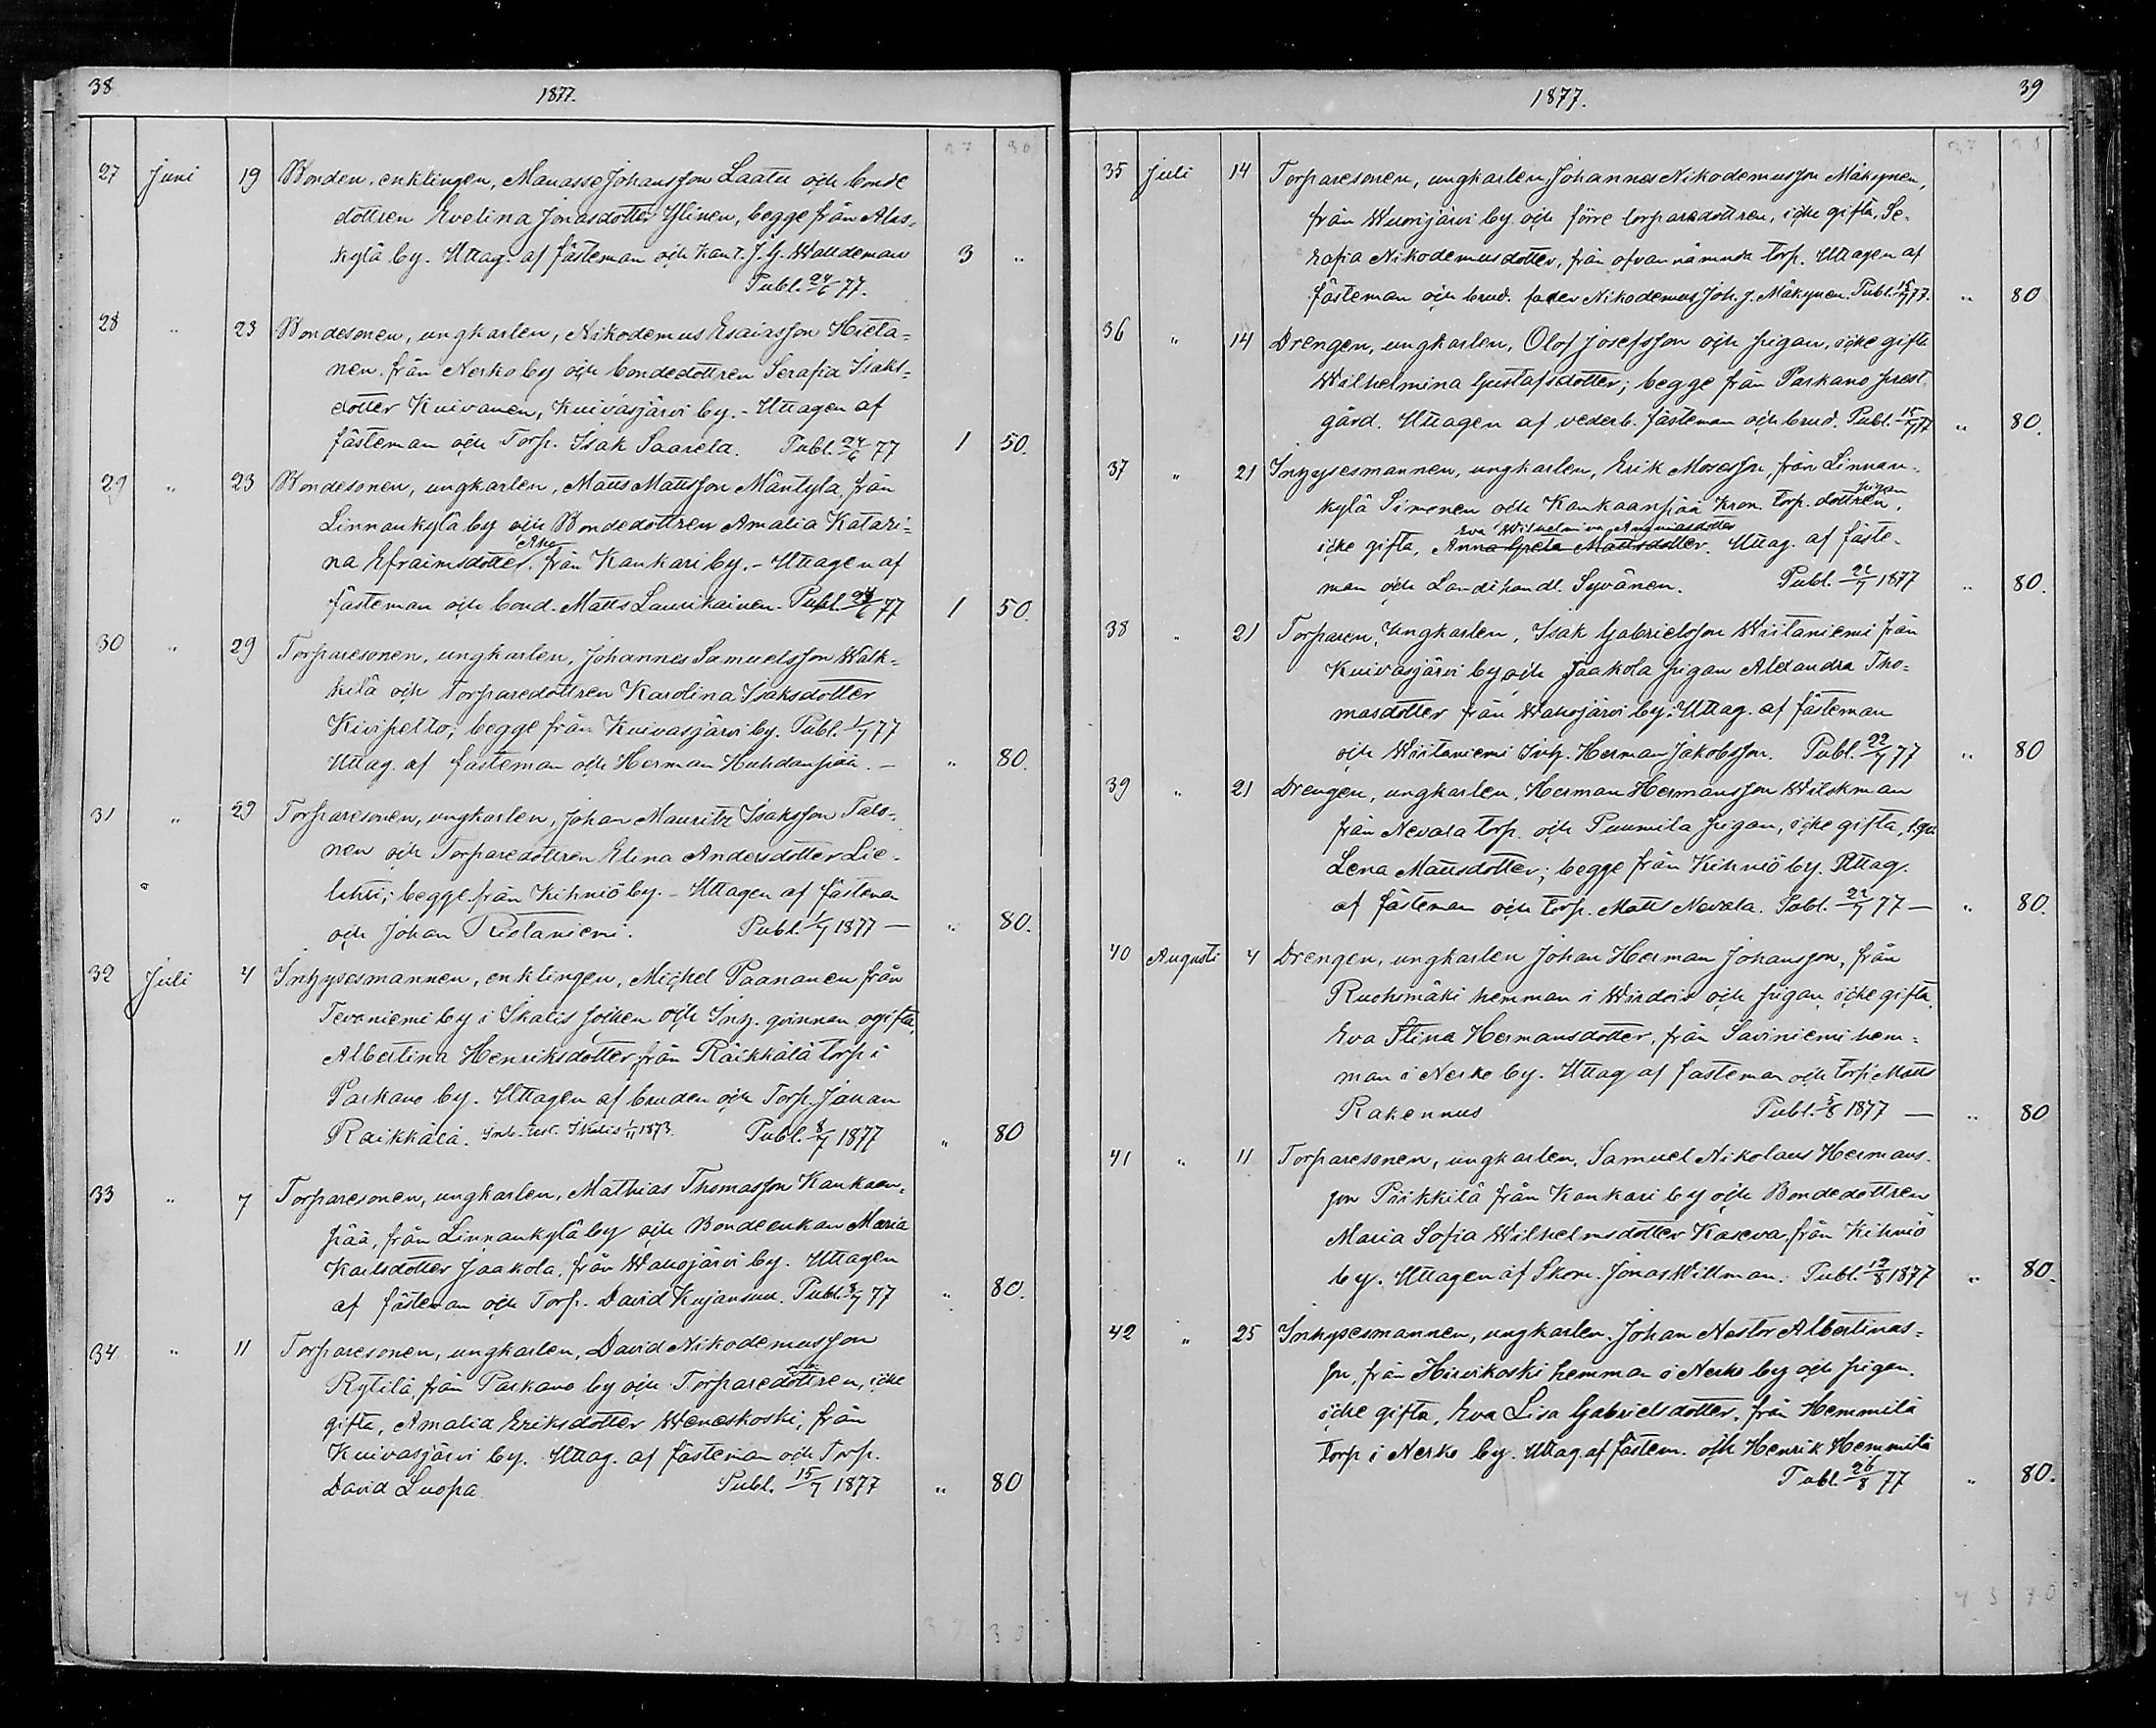 38
1877.
27 30
27 Juni 19 Bonden, enklingen, Manasse Johansson Laatu och bonde
dottren Evelina Jonasdotter Ylinen, begge från Alas-
kylä by. Uttag. af fästeman och Kant. J. G. Walldemars 3 "
Publ. 24/6 77.
28 " 23 Bondesonen, ungkarlen, Nikodemus Esaiasson Hieta-
nen från Nerko by och bondedottren Serafia Isaks-
dotter Kuivanen, Kuivasjärvi by. - Uttagen af
fästeman och Torp. Isak Saarela. Publ. 24/6 77 1 50.
29 " 23 Bondesonen, ungkarlen, Matts Mattsson Mäntylä från
Linnankylä by och Bondedottren Amalia Katari-
na Efraimsdotter Aho från Kankari by. - Uttagen af
fästeman och bond. Matts Laurikainen. Publ. 24/6 77 1 50.
30 " 29 Torparesonen, ungkarlen, Johannes Samuelsson Walk-
kilä och torparedottren Karolina Isaksdotter
Kivipelto; begge från Kuivasjärvi by. Publ. 1/7 77
Uttag. af fästeman och Herman Huhdanpää. - " 80.
31 " 29 Torparesonen, ungkarlen, Johan Mauritz Isaksson Talo-
nen och Torparedottren Elina Andersdotter Lie-
lahti; begge från Kihniö by. - Uttagen af fästeman
och Johan Ristaniemi. Publ. 1/7 1877 — " 80.
32 Juli 4 Inhysesmannen, enklingen, Michel Paananen från
Tevaniemi by i Ikalis socken och Inh. qvinnan ogifta
Albertina Henriksdotter från Räikkälä torp i
Parkano by. Uttagen af bruden och Torp. Johan
Raikkälä. Inb. test. Ikalis 1/11 1873. Publ. 8/7 1877 " 80
33 " 7 Torparesonen, ungkarlen, Mathias Thomasson Kankaan-
pää, från Linnankylä by och Bondeenkan Maria
Karlsdotter Jaakola, från Wahojärvi by. Uttagen
af fästeman och Torp. David Kujansuu. Publ. 8/7 77 " 80.
34 " 11 Torparesonen, ungkarlen, David Nikodemusson
Rytilä från Parkano by och Torparedottren, icke
gifta, Amalia Eriksdotter Weneskoski, från
Kuivasjärvi by. Uttag. af fästeman och Torp.
David Luopa. Publ. 15/7 1877 " 80
1877.
39
35 Juli 14 Torparesonen, ungkarlen, Johannes Nikodemusson Mäkynen,
från Wuorijärvi by och förre torparedottren, icke gifta, Se-
rafia Nikodemusdotter, från ofvannämnda torp. Uttagen af
fästeman och brud. fader Nikodemus Joh. s. Mäkynen. Publ. 15/7 77. " 80
36 " 14 Drengen, ungkarlen, Olof Josefsson och pigan, icke gifta
Wilhelmina Gustafsdotter; begge från Parkano prest-
gård. Uttagen af vederb. fästeman och brud. Publ. 15/7 77 " 80.
37 " 21 Inhysesmannen, ungkarlen, Erik Mosesson, från Linnan-
kylä Simonen och Kankaanpää Kron. torp. dottren, pigan
Eva Wilhelmina Ananiasdotter
icke gifta, Anna Greta Mattsdotter. Uttag. af fäste-
man och Landthandl. Syvänen. Publ. 22/7 1877 " 80.
38 " 21 Torparen, Ungkarlen, Isak Gabrielsson Wiitaniemi från
Kuivasjärvi by och Jaakola pigan Alexandra Tho-
masdotter från Wahojärvi by. Uttag. af fästeman
och Wiitaniemi Inh. Herman Jakobsson. Publ. 22/7 77 " 80
39 " 21 Drengen, ungkarlen, Herman Hermansson Wilskman
från Nevala torp. och Puumila pigan, icke gifta,
Lena Mattsdotter; begge från Kihniö by. Uttag.
af fästeman och torp. Matts Nevala. Publ. 22/7 77 — " 80.
40 Augusti 4 Drengen, ungkarlen Johan Herman Johansson, från
Ruohomäki hemman i Wirdois och pigan icke gifta
Eva Stina Hermansdotter, från Saviniemi hem-
man i Nerko by. Uttag af fästeman och torp. Matts
Rakennus Publ. 5/8 1877 — " 80
41 " 11 Torparesonen, ungkarlen, Samuel Nikolaus Hermans-
son Pärkkilä från Kankari by och Bondedottren
Maria Sofia Wilhelmsdotter Kaseva från Kihniö
by. Uttagen af Skom. Jonas Willman. Publ. 12/8 1877 " 80.
42 " 25 Inhysesmannen, ungkarlen. Johan Nestor Albertinus-
son, från Hirvikoski hemman i Nerko by och pigan,
icke gifta, Eva Lisa Gabrielsdotter, från Hemmilä
torp i Nerko by. Uttag. af fästem. och Henrik Hemmilä
Publ. 26/8 77 " 80.